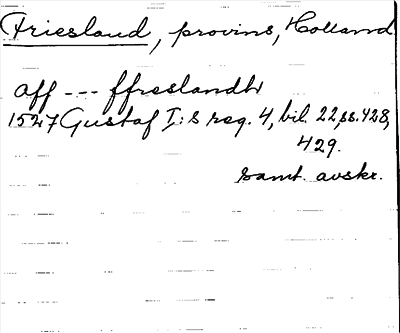 Friesland, provins, Holland
aff --- ffreslandh
1527 Gustaf I:s reg. 4, bil. 22, ss. 428,
429.
samt. avskr.